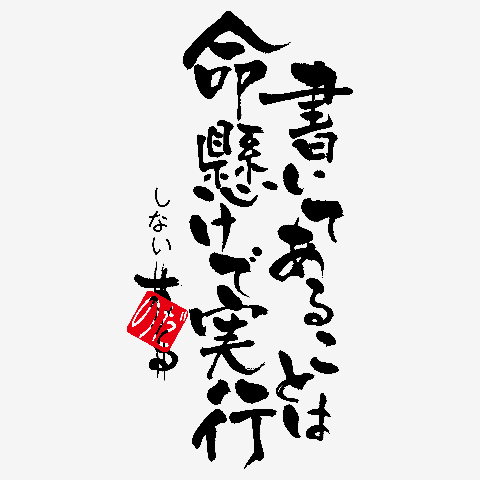 書いてあることは
命懸けで実行
しない